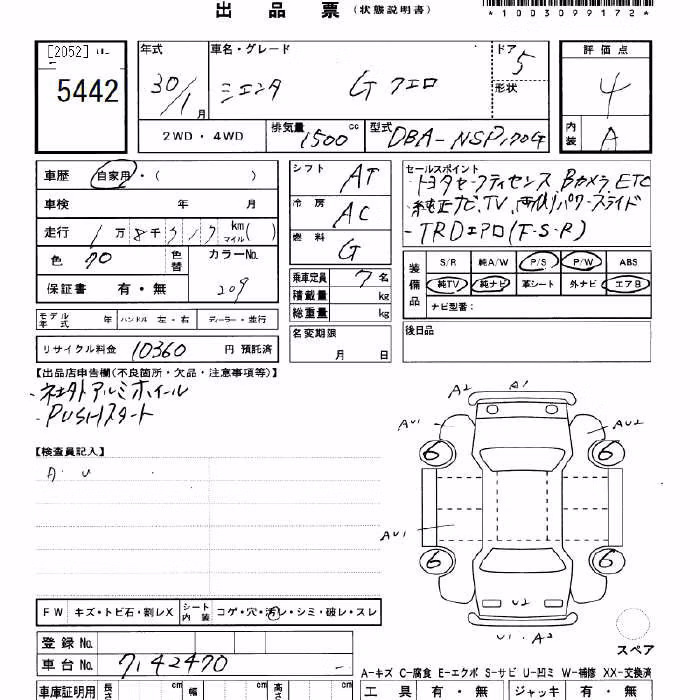 出 品 票 (状態説明書)
*1003099172*
[2052]
5442
年式 30/1月
車名・グレード シエンタ G クエロ
ドア 5
形状
評価点 4
内装 A
2WD・4WD
排気量 1500 cc
型式 DBA-NSP170G
車歴 自家用・( )
車検 年 月
走行 1万8千 km マイル( )
色 クロ 色替 カラーNo. 209
保証書 有・無
シフト AT
冷房 AC
燃料 G
乗車定員 7名
積載量 kg
総重量 kg
名変期限 月 日
セールスポイント
・トヨタセーフティセンス、Bカメラ、ETC
・純正ナビ、TV、両側パワースライド
・TRDエアロ(F・S・R)
装備品
S/R 純A/W P/S P/W ABS
純TV 純ナビ 革シート 外ナビ エアB
ナビ型番:
後日品
モデル年式 年 ハンドル 左・右 ディーラー・並行
リサイクル料金 10360 円 預託済
【出品店申告欄(不良箇所・欠品・注意事項等)】
・社外アルミホイール
・PUSHスタート
【検査員記入】
A・U
A2 A1
AU1 AU2
6 6
AU1
6 6
U2
U1・A2
スペア
FW キズ・トビ石・割レX シート内装 コゲ・穴・汚レ・シミ・破レ・スレ
登録No.
車台No. 7142470
A-キズ C-腐食 E-エクボ S-サビ U-凹ミ W-補修 XX-交換済
車庫証明用 長さ cm 幅 cm 高さ cm
工具 有・無 ジャッキ 有・無